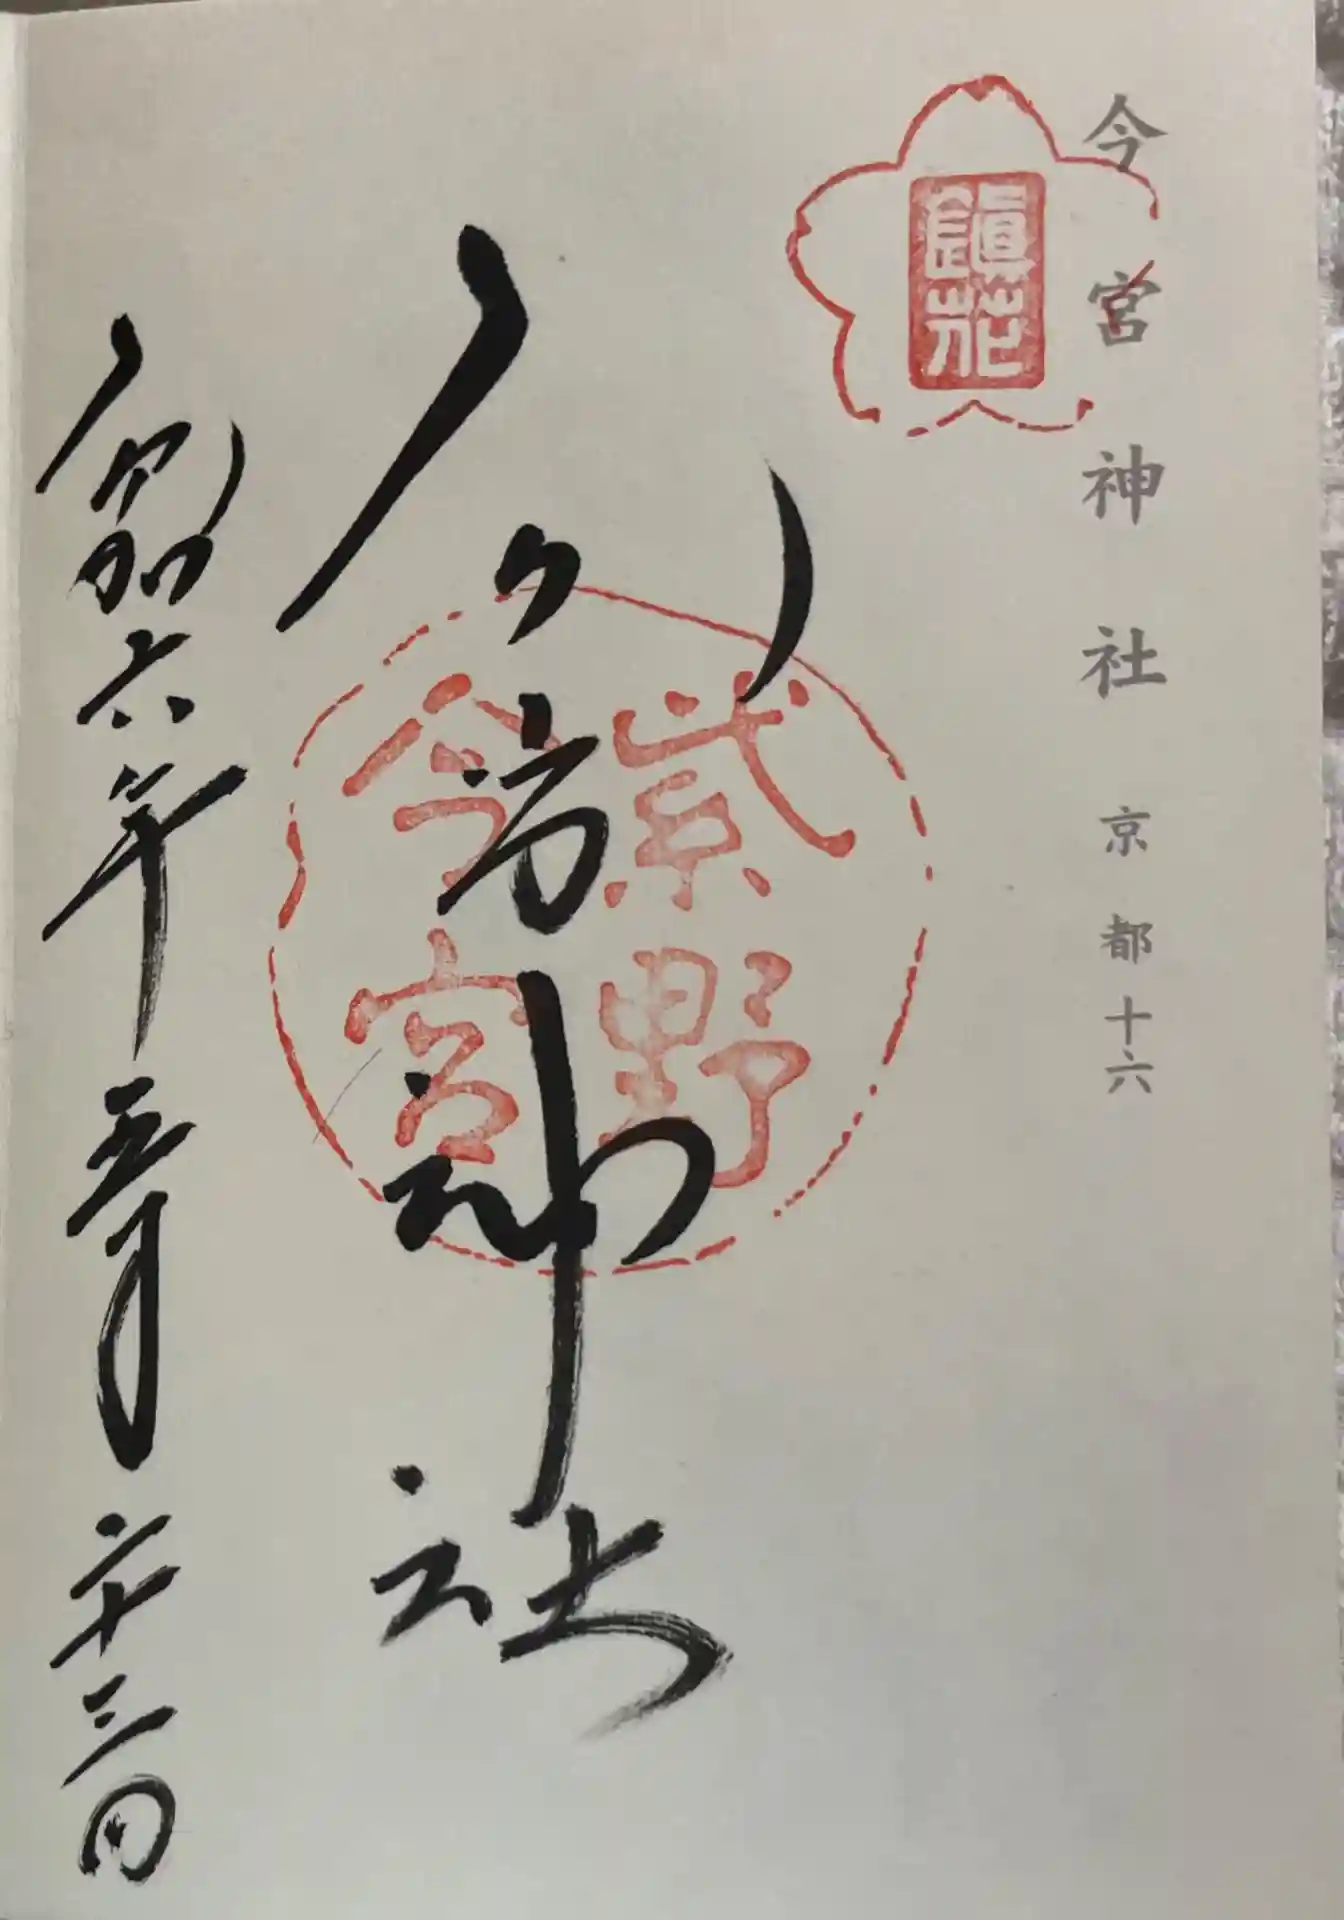 今宮神社 京都十六
鎮花
今宮神社
紫野
今宮
令和六年五月二十三日